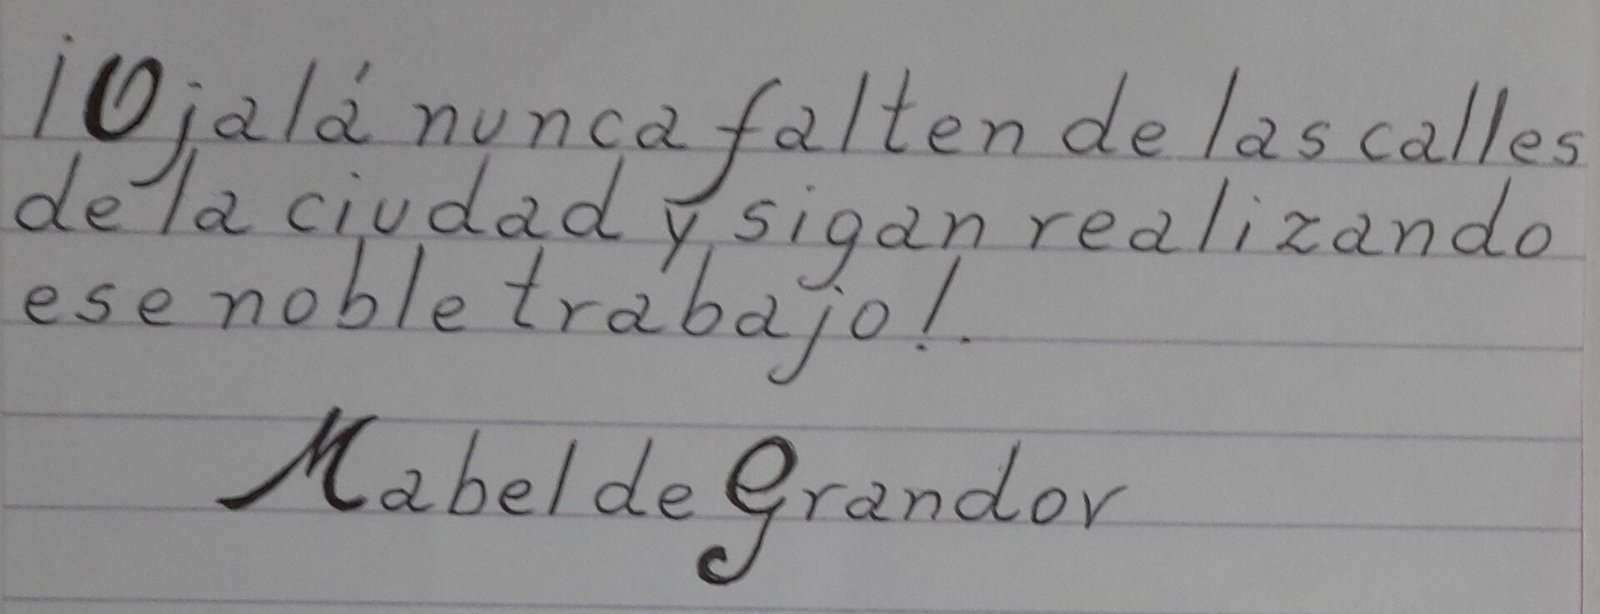 ¡Ojalá nunca falten de las calles
de la ciudad y sigan realizando
ese noble trabajo!.
Mabel de Grandov